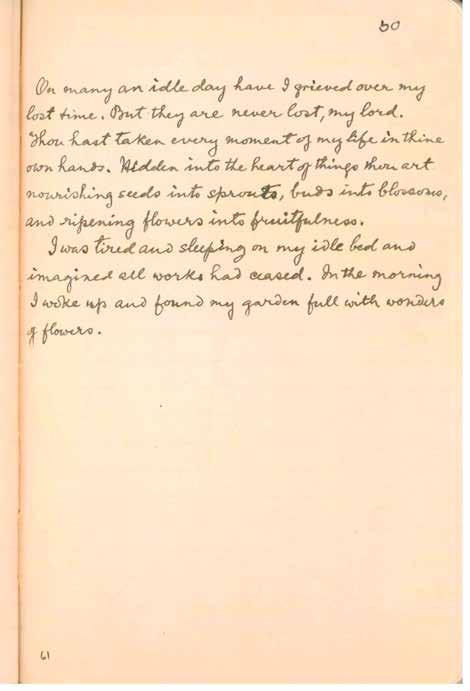 50
On many an idle day have I grieved over my
lost time. But they are never lost, my lord.
Thou hast taken every moment of my life in thine
own hands. Hidden into the heart of things thou art
nourishing seeds into sprouts, buds into blossoms,
and ripening flowers into fruitfulness.
I was tired and sleeping on my idle bed and
imagined all works had ceased. In the morning
I woke up and found my garden full with wonders
of flowers.
61